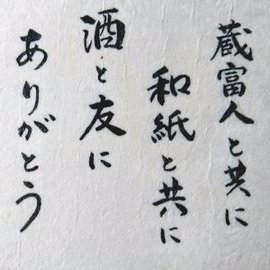 蔵富人と共に
和紙と共に
酒と友に
ありがとう